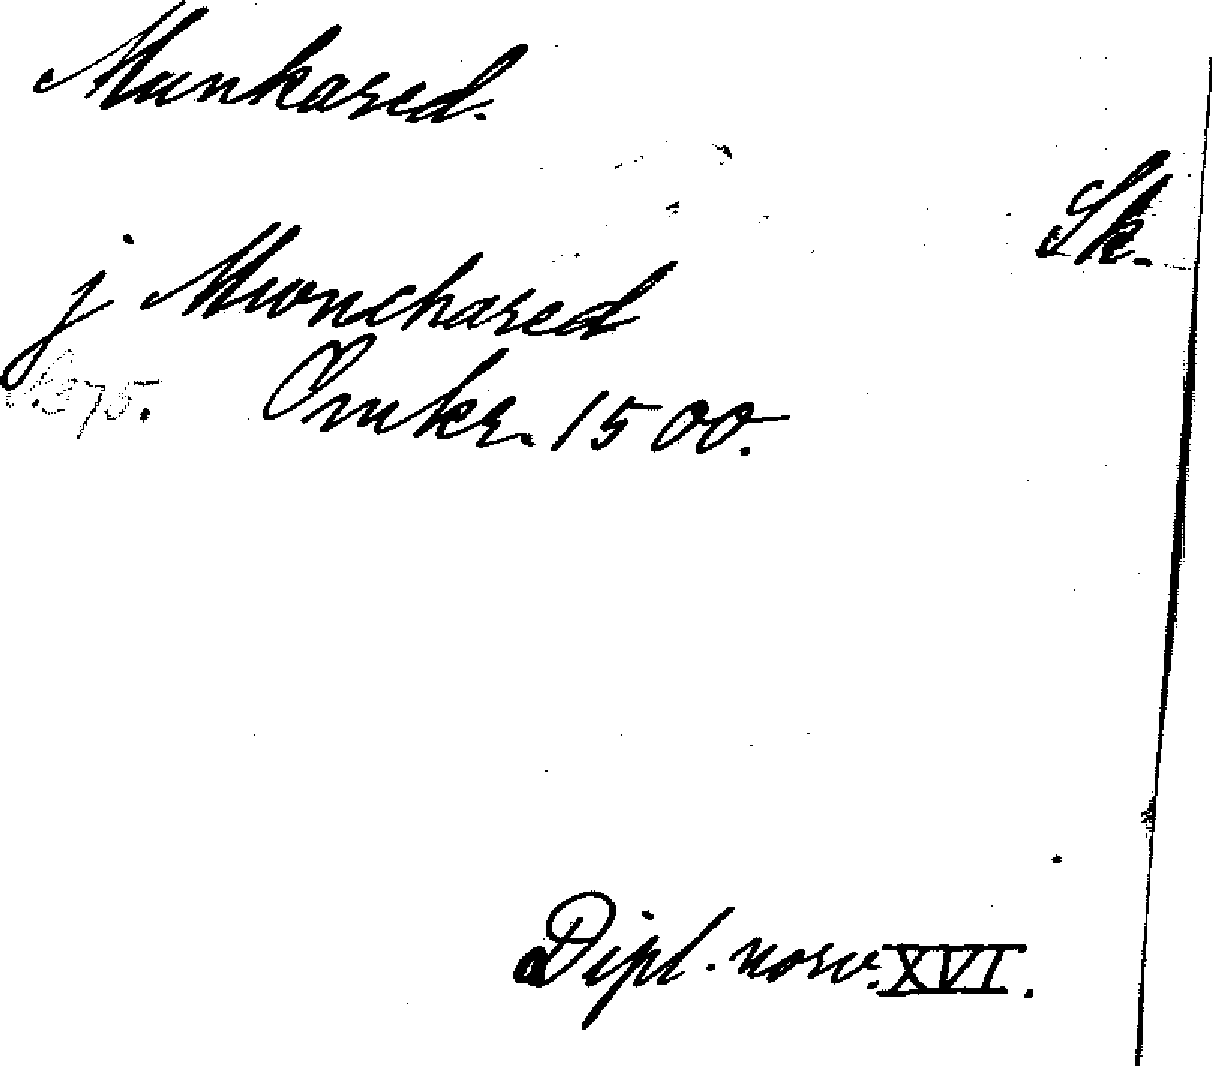 Munkared.
Sk.
j Mwnchared
s. 375. Omkr. 1500.
Dipl. norv. XVI.